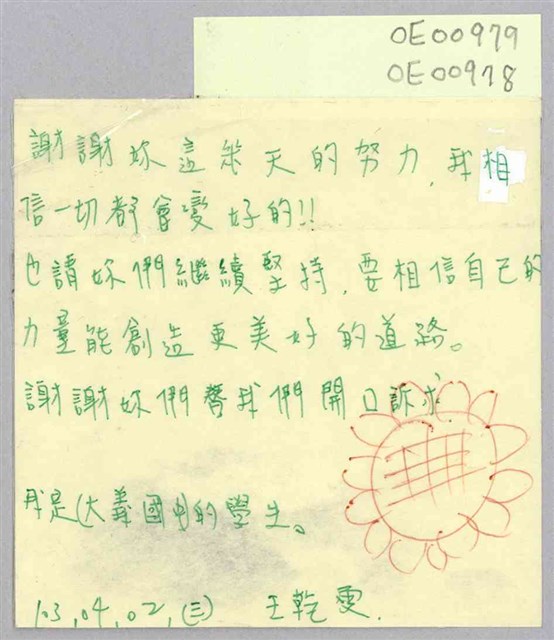 OE00979
OE00978
謝謝妳這幾天的努力,我相
信一切都會變好的!!
也請妳們繼續堅持,要相信自己的
力量能創造更美好的道路。
謝謝妳們替我們開口訴求
我是(大義國中)的學生。
103,04,02,(三) 王乾雯.